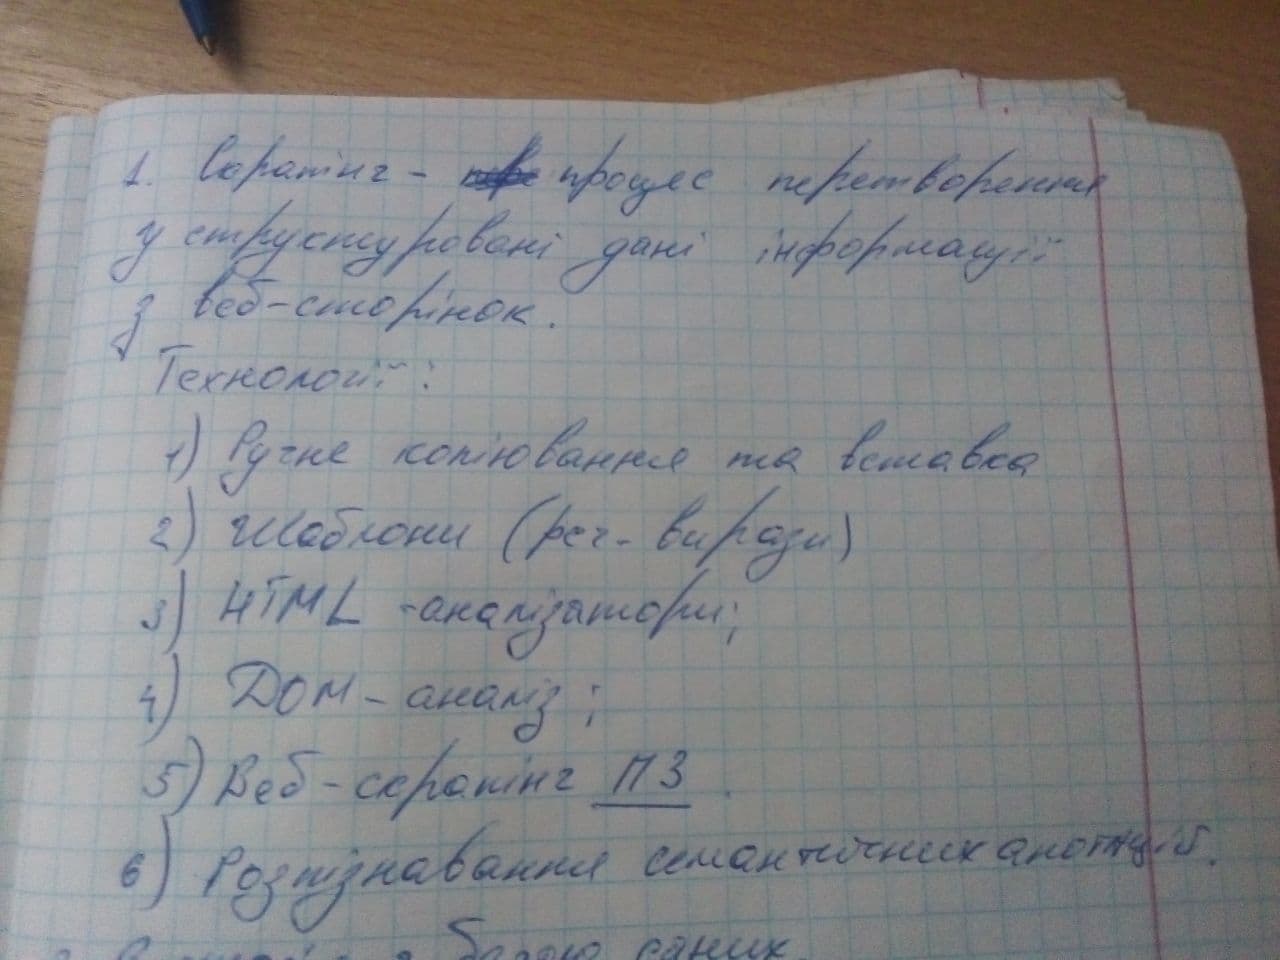 1. Скрапінг - процес перетворення
у структуровані дані інформації
з веб-сторінок.
Технології:
1) Ручне копіювання та вставка
2) Шаблони (рег-вирази)
3) HTML-аналізатори;
4) DOM-аналіз;
5) Веб-скрапінг ПЗ.
6) Розпізнавання семантичних анотацій.
з базою даних.